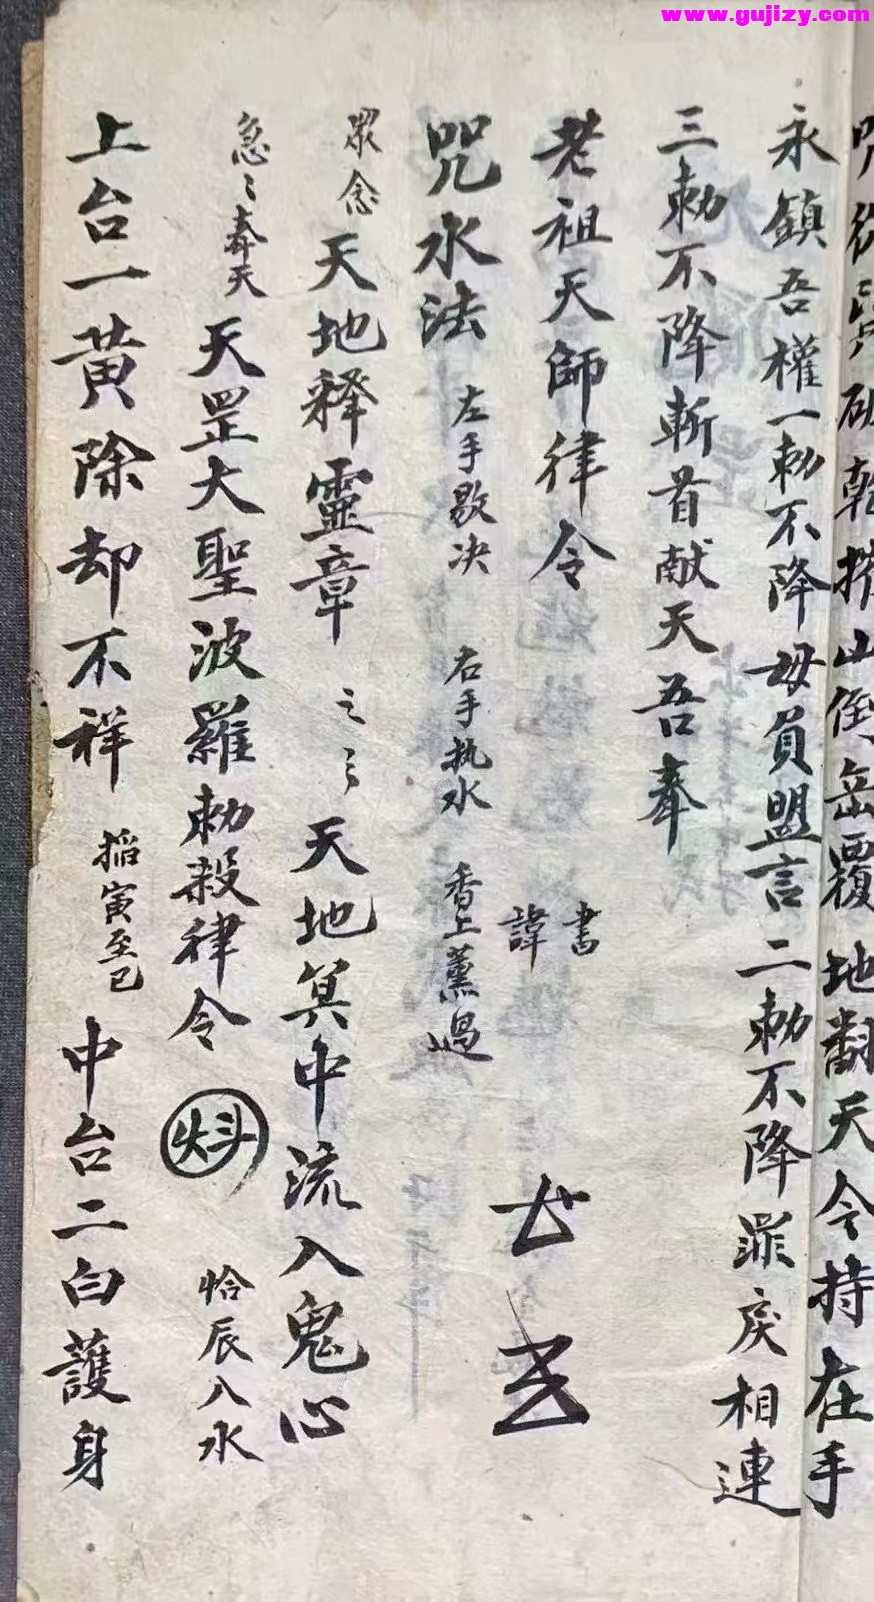 www.gujizy.com
山倒岳覆地翻天令持在手
永鎮吾權一勅不降毋負盟言二勅不降罪戾相連
三勅不降斬首献天吾奉
老祖天師律令
書
諱
咒水法 左手 决 右手执水 香上薰過
眾念 天地释靈章 之之 天地 中流入鬼心
急〻奉天 天罡大聖波羅勅殺律令 恰辰八水
上台一黄除却不祥 掐寅至巳 中台二白護身